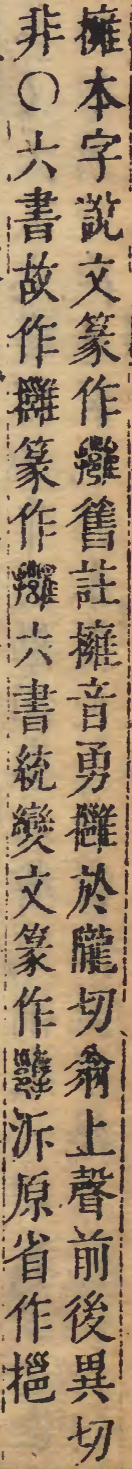 擁本字說文篆作𢹬舊註擁音勇𢹬於隴切翁上聲前後異切
非○六書故作𢹬篆作𢹬六書統變文篆作𢹬泝原省作挹